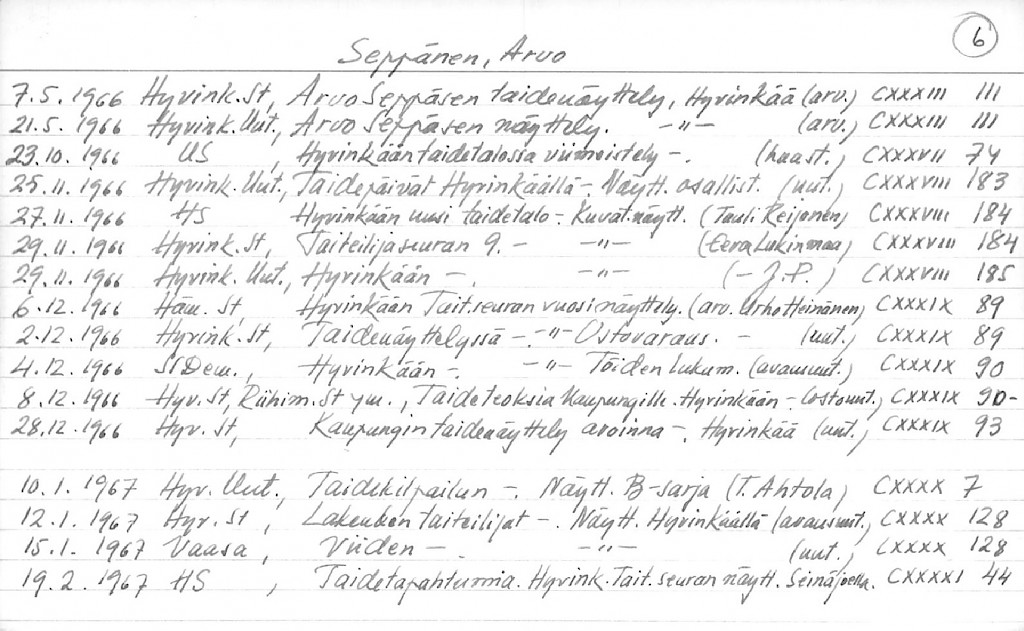 6
Seppänen, Arvo
7.5.1966 Hyvink.St, Arvo Seppäsen taidenäyttely, Hyvinkää (arv.) CXXXIII 111
21.5.1966 Hyvink.Uut., Arvo Seppäsen näyttely. -"- (arv.) CXXXIII 111
23.10.1966 US , Hyvinkään taidetalossa viimeistely -. (haast.) CXXXVII 74
25.11.1966 Hyvink.Uut., Taidepäivät Hyvinkäällä -. Näytt. osallist. (uut.) CXXXVIII 183
27.11.1966 HS Hyvinkään uusi taidetalo - Kuvat.näytt. (Tauli Reijonen) CXXXVIII 184
29.11.1966 Hyvink.St, Taiteilijaseuran 9. - -"- (Eeva Lukinmaa) CXXXVIII 184
29.11.1966 Hyvink.Uut., Hyvinkään -. -"- (- J.P.) CXXXVIII 185
6.12.1966 Häm.St, Hyvinkään Tait.seuran vuosinäyttely. (arv. Urho Heinänen) CXXXIX 89
2.12.1966 Hyvink.St, Taidenäyttelyssä -. -"- Ostovaraus. - (uut.) CXXXIX 89
4.12.1966 S/Dem., Hyvinkään -. -"- Töiden lukum. (avausuut.) CXXXIX 90
8.12.1966 Hyv.St, Riihim.St ym., Taideteoksia kaupungille. Hyvinkään - (ostouut.) CXXXIX 90-
28.12.1966 Hyv.St, Kaupungin taidenäyttely avoinna -. Hyvinkää (uut.) CXXXIX 93
10.1.1967 Hyv.Uut., Taidekilpailun -. Näytt. B-sarja (T. Ahtola) CXXXX 7
12.1.1967 Hyv.St, Lakeuden taiteilijat -. Näytt. Hyvinkäällä (avausuut.) CXXXX 128
15.1.1967 Vaasa, Viiden - -"- (uut.) CXXXX 128
19.2.1967 HS , Taidetapahtumia. Hyvink.Tait.seuran näytt. Seinäjoella. CXXXXI 44